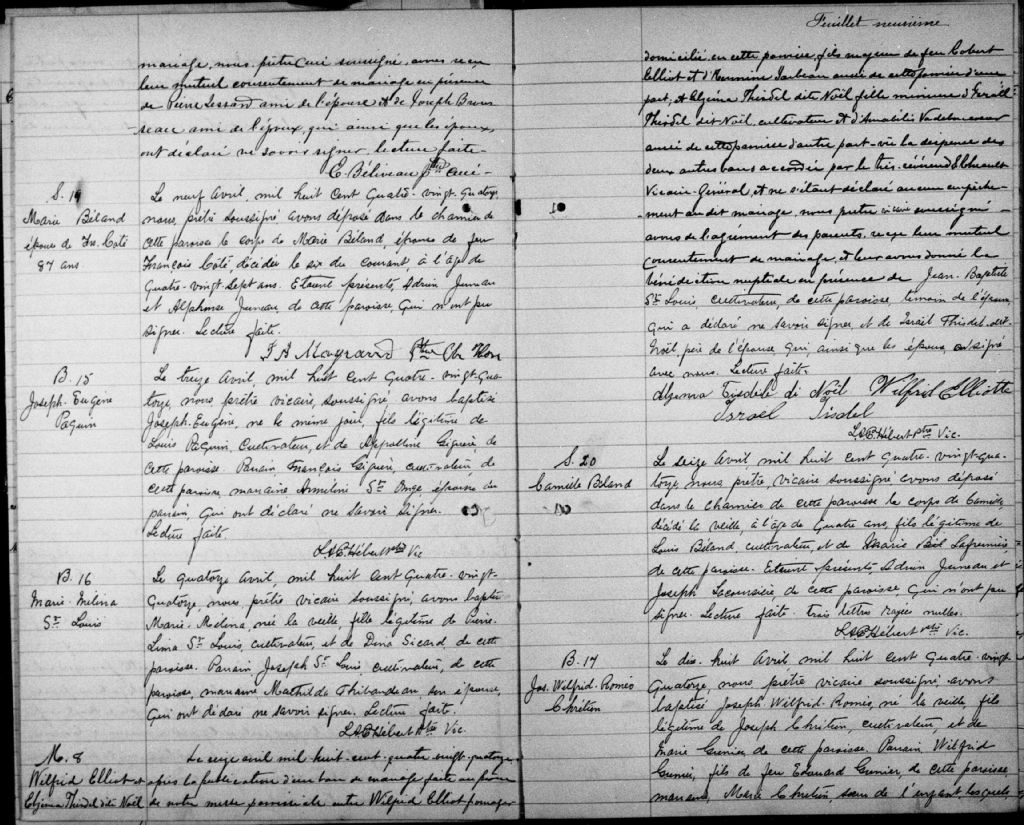 mariage, nous, prêtre curé soussigné, avons reçu
leur mutuel consentement de mariage en présence
de Pierre Lessard ami de l'épouse et de Joseph
ami de l'époux, qui ainsi que les époux,
ont déclaré ne savoir signer, lecture faite.
E. Béliveau ptre curé
S. 19
Marie Béland
épouse de Frs. Coté
87 ans
Le neuf Avril, mil huit cent quatre-vingt-quatorze,
nous, prêtre soussigné avons déposé dans le charnier de
cette paroisse le corps de Marie Béland, épouse de feu
François Coté, décédée le six du courant, à l'âge de
quatre-vingt-sept ans. Etaient présents, Adrien Juneau
et Alphonse Juneau de cette paroisse, qui n'ont pu
signer. Lecture faite.
Ptre
B. 15
Joseph-Eugène
Paquin
Le treize Avril, mil huit cent quatre-vingt-qua-
torze, nous, prêtre vicaire, soussigné avons baptisé
Joseph-Eugène, né le même jour, fils légitime de
Louis Paquin, cultivateur, et de Appolline Giguère, de
cette paroisse. Parrain François Giguère, cultivateur de
cette paroisse, marraine St. Onge épouse du
parrain, qui ont déclaré ne savoir signer.
Lecture faite.
L.A.E. Hébert ptre Vic
B. 16
Marie-Mélina
St. Louis
Le quatorze Avril, mil huit cent quatre-vingt-
quatorze, nous, prêtre vicaire soussigné, avons baptisé
Marie, née la veille, fille légitime de Pierre
St. Louis, cultivateur, et de Dina Sicard de cette
paroisse. Parrain, Joseph St. Louis cultivateur, de cette
paroisse, marraine Mathilde Thibaudeau, son épouse,
qui ont déclaré ne savoir signer. Lecture faite.
L.A.E. Hébert Ptre Vic.
M. 8
Wilfrid Elliot et
Thisdel dite Noël
Le seize avril mil huit-cent-quatre-vingt-quatorze
après la publication d'un ban de mariage faite au prône
de notre messe paroissiale entre Wilfrid Elliot
Feuillet neuvième
domicilié en cette paroisse, fils majeur de feu Robert
Elliot et d'Hermine aussi de cette paroisse d'une
part, et Thisdel dite Noël fille mineure d'Israël
Thisdel dit Noël, cultivateur et d'
aussi de cette paroisse d'autre part – vu la dispense des
deux autres bans accordée par le très révérend
Vicaire-Général, et ne s'étant déclaré aucun empêche-
ment au dit mariage, nous prêtre vicaire soussigné –
avons de l'agrément des parents, reçu leur mutuel
consentement de mariage, et leur avons donné la
bénédiction nuptiale en présence de Jean-Baptiste
St. Louis, cultivateur, de cette paroisse, témoin de l'époux,
qui a déclaré ne savoir signer, et de Israël Thisdel-dit-
Noël, père de l'épouse, qui, ainsi que les époux, ont signé
avec nous. Lecture faite.
di Noël Wilfrid Elliotte
Israel Tisdel
L.A.E. Hébert Ptre Vic.
S. 20
Camille Béland
Le seize Avril mil huit cent quatre-vingt-qua-
torze, nous prêtre, vicaire soussigné avons déposé
dans le charnier de cette paroisse le corps de Camille,
décédé la veille à l'âge de quatre ans, fils légitime de
Louis Béland cultivateur, et de Marie
de cette paroisse. Etaient présents, Adrien Juneau et
Joseph Lacoursière, de cette paroisse qui n'ont pu
signer. Lecture faite. trois lettres rayées nulles.
L.A.E. Hébert ptre Vic.
B. 17
Jos. Wilfrid-Roméo
Chrétien
Le dix-huit Avril, mil huit cent quatre-vingt-
quatorze, nous prêtre vicaire soussigné, avons
baptisé Joseph-Wilfrid-Roméo, né la veille, fils
légitime de Joseph Chrétien, cultivateur, et de
Marie de cette paroisse. Parrain Wilfrid
fils de feu Edouard de cette paroisse
marraine, Marie Chrétien, sœur de l'enfant, lesquels